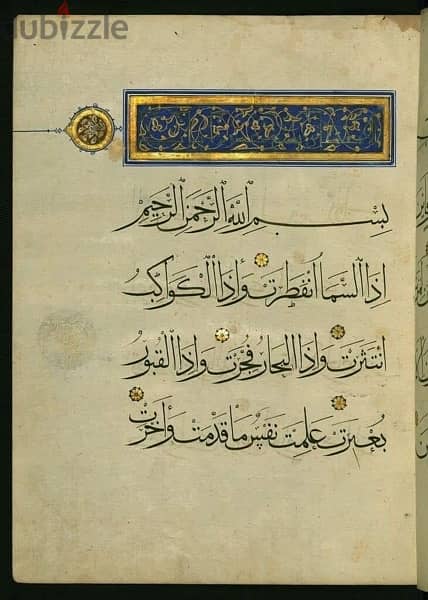 dubizzle
بِسْمِ اللَّهِ الرَّحْمَنِ الرَّحِيمِ
إِذَا السَّمَا انْفَطَرَتْ وَإِذَا الْكَوَاكِبُ
انْتَثَرَتْ وَإِذَا الْبِحَارُ فُجِّرَتْ وَإِذَا الْقُبُورُ
بُعْثِرَتْ عَلِمَتْ نَفْسٌ مَا قَدَّمَتْ وَأَخَّرَتْ